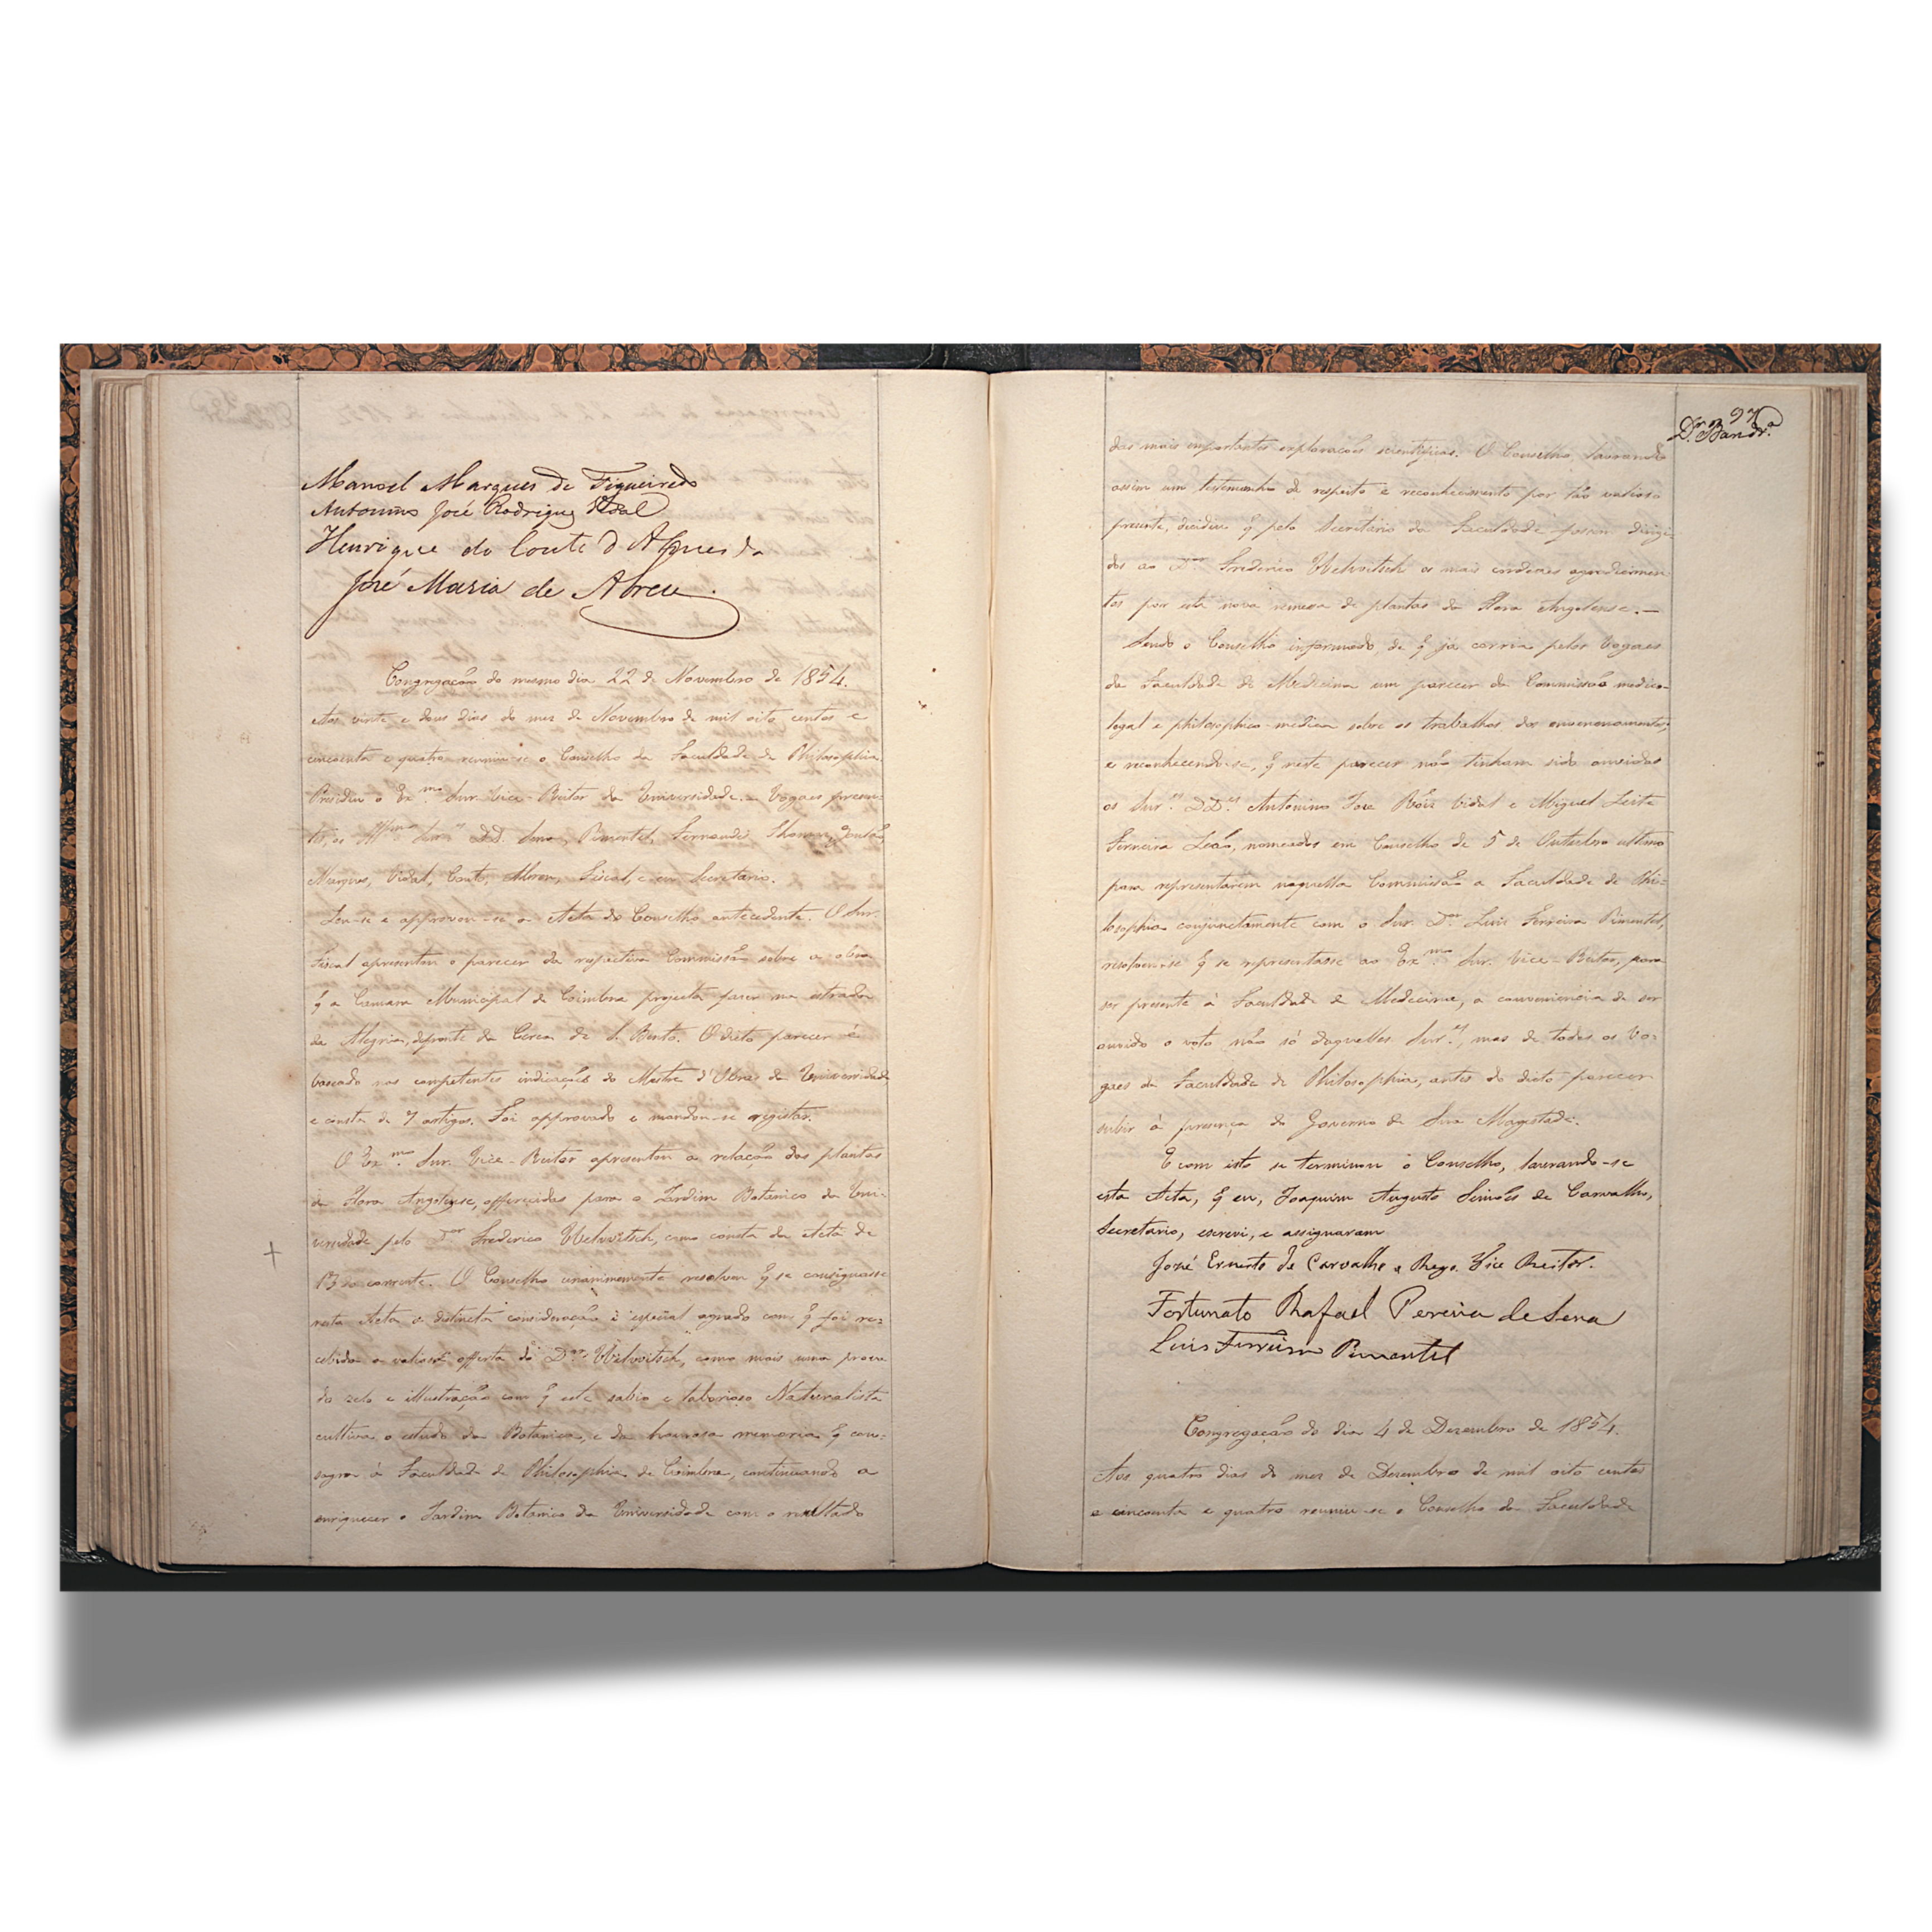 Manoel Marques de Figueiredo
Antonino José Rodrigues Vidal
Henrique do Couto d'Almeida
José Maria de Abreu.
Congregação do mesmo dia 22 de Novembro de 1854.
Aos vinte e dous dias do mez de Novembro de mil oito centos e
cincoenta e quatro reuniu-se o Conselho da Faculdade de Philosophia.
Presidiu o Ex.mo Snr. Vice-Reitor da Universidade. Vogaes presen-
tes, os Snr.es DD. Sena, Pimentel, Fernandes, Thomaz,
Marques, Vidal, Couto, Abreu, Fiscal, e eu Secretario.
Leu-se e approvou-se a Acta do Conselho antecedente. O Snr.
Fiscal apresentou o parecer da respectiva Commissão sobre a obra
q̃ a Camara Municipal de Coimbra projecta fazer na estrada
da Alegria, defronte da Cerca de S. Bento. O dicto parecer é
baseado nas competentes indicações do Mestre d'Obras da Universidade
e consta de 7 artigos. Foi approvado e mandou-se registar.
O Ex.mo Snr. Vice-Reitor apresentou a relação das plantas
da Flora Angolense, offerecidas para o Jardim Botanico da Uni-
versidade pelo D.or Frederico Welwitsch, como consta da Acta de
13 do corrente. O Conselho unanimemente resolveu q̃ se consignasse
nesta Acta a distincta consideração e especial agrado com q̃ foi re-
cebida a valiosa offerta do D.or Welwitsch, como mais uma prova
do zelo e illustração com q̃ este sabio e laborioso Naturalista
cultiva o estudo da Botanica, e da honrosa memoria q̃ con-
sagra á Faculdade de Philosophia de Coimbra, continuando a
enriquecer o Jardim Botanico da Universidade com o resultado
97
D.or Band.ra
das mais importantes explorações scientificas. O Conselho, lavrando
assim um testemunho de respeito e reconhecimento por tão valioso
presente, decidiu q̃ pelo Secretario da Faculdade fossem dirigi-
dos ao D.or Frederico Welwitsch os mais cordiaes agradecimen-
tos por esta nova remessa de plantas da Flora Angolense.—
Sendo o Conselho informado, de q̃ já corria pelos Vogaes
da Faculdade de Medicina um parecer da Commissão medico-
legal e philosophico-medica sobre os trabalhos dos envenenamentos,
e reconhecendo-se, q̃ neste parecer não tinham sido ouvidos
os Snr.es DD.es Antonino José Roiz Vidal e Miguel Leite
Ferreira Leão, nomeados em Conselho de 5 de Outubro ultimo
para representarem naquella Commissão a Faculdade de Phi-
losophia conjunctamente com o Snr. D.or Luis Ferreira Pimentel,
resolveu-se q̃ se representasse ao Ex.mo Snr. Vice-Reitor, para
ser presente á Faculdade de Medicina, a conveniencia de ser
ouvido o voto não só daquelles Snr.es, mas de todos os Vo-
gaes da Faculdade de Philosophia, antes do dicto parecer
subir á presença do Governo de Sua Magestade.
E com isto se terminou o Conselho, lavrando-se
esta Acta, q̃ eu, Joaquim Augusto Simões de Carvalho,
Secretario, escrevi, e assignaram
José Ernesto de Carvalho e Rego. Vice Reitor.
Fortunato Rafael Pereira de Sena
Luis Ferreira Pimentel
Congregação do dia 4 de Dezembro de 1854.
Aos quatro dias do mez de Dezembro de mil oito centos
e cincoenta e quatro reuniu-se o Conselho da Faculdade